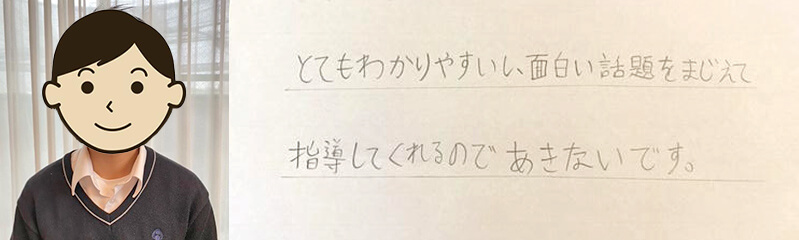 とてもわかりやすいし、面白い話題をまじえて
指導してくれるのであきないです。